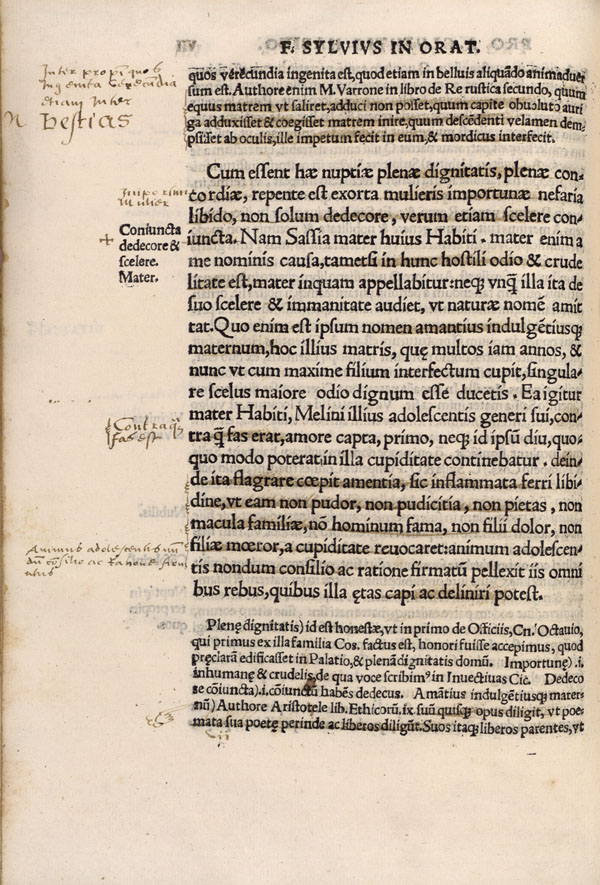 F. SYLVIVS IN ORAT.
Inter propi quos
Ingenita verecundia
etiam inter
N bestias
quos verecundia ingenita est, quod etiam in belluis aliquãdo animaduer
sum est. Authore enim M. Varrone in libro de Re rustica secundo, quum
equus matrem vt saliret, adduci non posset, quum capite obuoluto auri
ga adduxisset & coegisset matrem inire, quum descẽdenti velamen dem⸗
psisset ab oculis, ille impetum fecit in eum, & mordicus interfecit.
Cum essent hæ nuptiæ plenæ dignitatis, plenæ con⸗
cordiæ, repente est exorta mulieris importunæ nefaria
libido, non solum dedecore, verum etiam scelere con⸗
iuncta. Nam Sassia mater huius Habiti . mater enim a
me nominis causa, tametsi in hunc hostili odio & crude
litate est, mater inquam appellabitur: neqꝫ vnq̃ illa ita de
suo scelere & immanitate audiet, vt naturæ nomẽ amit
tat. Quo enim est ipsum nomen amantius indulgẽtiusqꝫ
maternum, hoc illius matris, quę multos iam annos, &
nunc vt cum maxime filium interfectum cupit, singula⸗
re scelus maiore odio dignum esse ducetis . Ea igitur
mater Habiti, Melini illius adolescentis generi sui, con⸗
tra q̃ fas erat, amore capta, primo, neqꝫ id ipsũ diu, quo⸗
quo modo poterat, in illa cupiditate continebatur . dein⸗
de ita flagrare cœpit amentia, sic inflammata ferri libi⸗
dine, vt eam non pudor, non pudicitia , non pietas , non
macula familiæ, nõ hominum fama, non filii dolor, non
filiæ mœror, a cupiditate reuocaret: animum adolescen⸗
tis nondum consilio ac ratione firmatũ pellexit iis omni
bus rebus, quibus illa ętas capi ac deliniri potest.
Mulier
Coniuncta
dedecore &
scelere.
Mater.
Contra q̃
fas est
Animus adolescentis
cõsilio ac ratione
Plenę dignitatis) id est honestæ, vt in primo de Officiis, Cn. Octauio,
qui primus ex illa familia Cos. factus est, honori fuisse accepimus, quod
pręclarã edificasset in Palatio, & plenã dignitatis domũ. Importunę) .i.
inhumanę & crudelis, de qua voce scribimꝰ in Inuectiuas Cic. Dedeco
re cõiuncta) .i. cõiunctũ habẽs dedecus. Amãtius indulgẽtiusqꝫ mater⸗
nũ) Authore Aristotele lib. Ethicorũ. ix. suũ quisqꝫ opus diligit, vt poe⸗
mata sua poetę perinde ac liberos diligũt. Suos itaqꝫ liberos parentes, vt